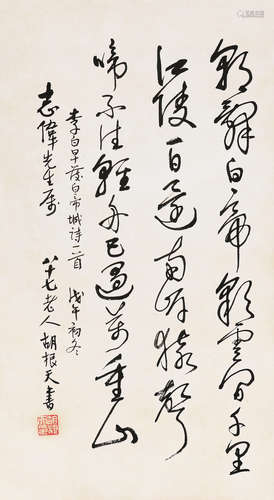 朝辭白帝彩雲間千里
江陵一日還兩岸猿聲
啼不住輕舟已過萬重山
李白早發白帝城詩一首 戊午初冬
志偉先生属 八十七老人胡根天書